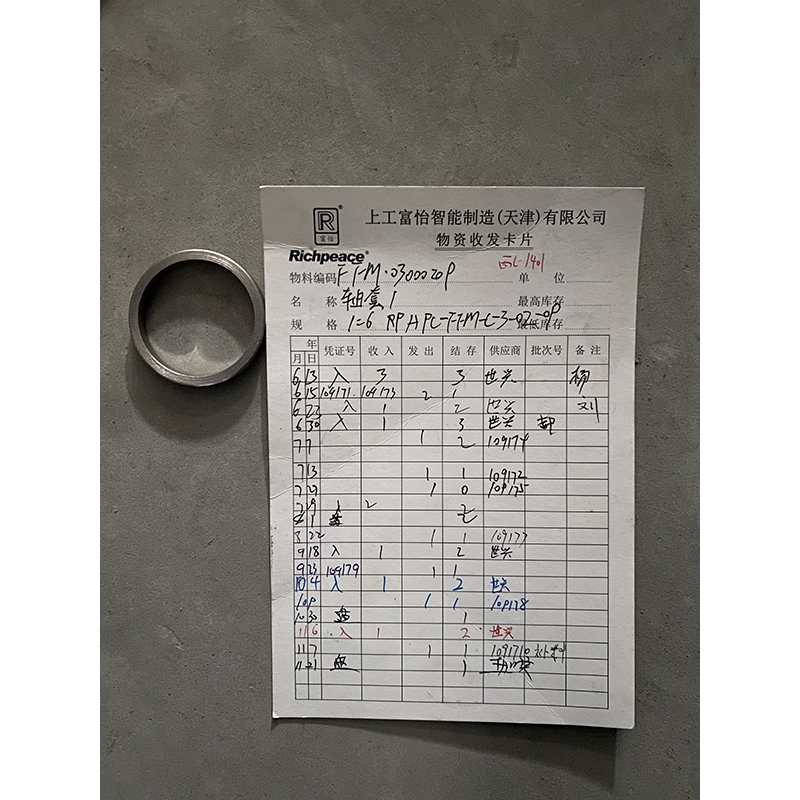 R
富怡
Richpeace
上工富怡智能制造(天津)有限公司
物资收发卡片
物料编码 FI-M-0300020P 单位
名称 轴套1 最高库存
规格 最低库存
年
月 日 凭证号 收入 发出 结存 供应商 批次号 备注
6 13 入 3 3 世兴 杨
6 15 109171. 109173 2 1
6 22 入 1 2 世兴 刘
6 30 入 1 3 世兴
7 7 1 2 109174
7 13 1 1 109172
7 27 1 0 109175
2
1 1 109177
9 18 入 1 2 世兴
9 23 109179 1 1
10 4 入 1 2 世兴
10 9 1 1 109178
10 30 盘 1
11 6 入 1 2 世兴
11 7 1 1 1091710 补料
11 21 盘 1